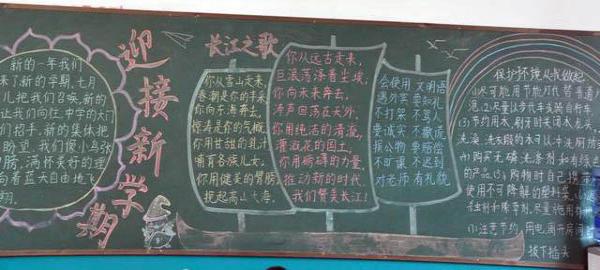 新的一年我们
来了新的学期,七月
儿把我们召唤,新的
让我们向往,中学的大门
们招手,新的集体把
盼望,我们像小鸟张
膀,满怀美好的理
向着蓝天自由地飞
翔.
迎接新学期
长江之歌
你从雪山走来,
春潮是你的丰采
你向东海奔去,
惊涛是你的气概,
你用甘甜的乳汁,
哺育各族儿女。
你用健美的臂膀,
挽起高山大海.
你从远古走来,
巨浪荡涤着尘埃,
你向未来奔去,
涛声回荡在天外,
你用纯洁的清流,
灌溉花的国土,
你用磅礴的力量,
推动新的时代.
我们赞美长江!
会使用 文明语
遇外宾 要知礼
不打架 不骂人
要诚实 不撒谎
损公物 要赔偿
不旷课 不迟到
对老师 有礼貌
保护环境从我做起
用节能灯代替普通
尽量以步代车或骑自行车
(3)节约用水,刷牙时关闭水龙头,
洗澡、洗衣服的水可以冲洗厕所
(4)购买无磷洗涤剂和有绿色
的产品(5)购物时自己携
使用不可降解的塑料袋,
注意节约用电,离开房间
拔下插头